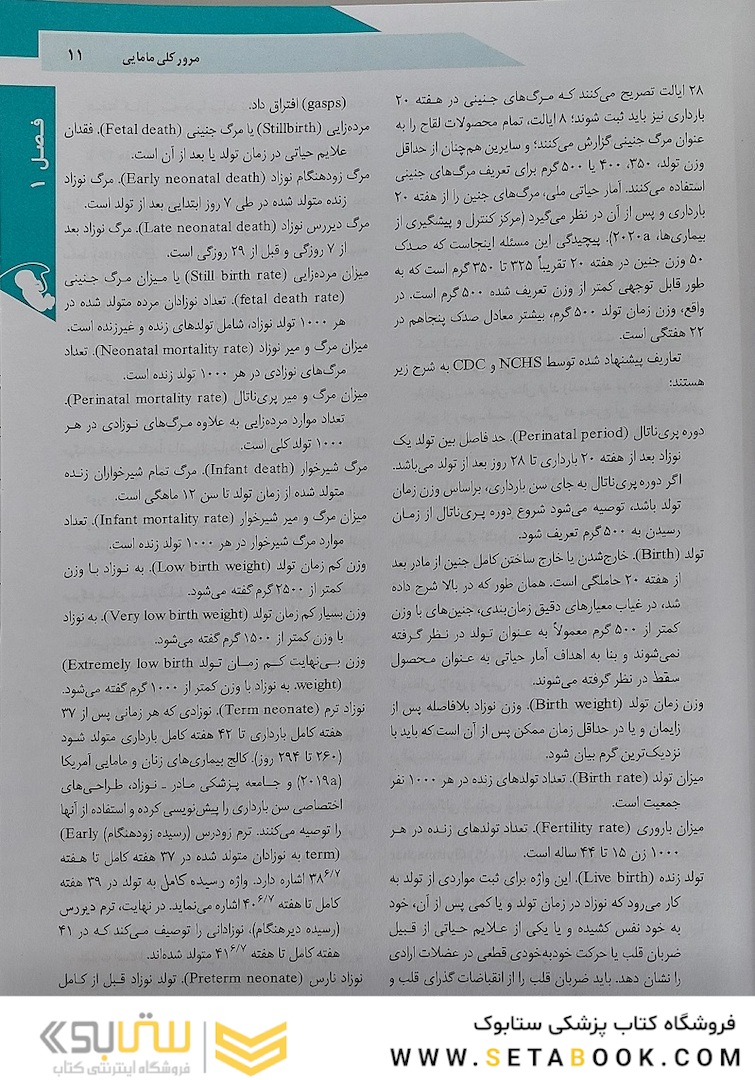 مرور کلی مامایی ۱۱
فصل ۱
۲۸ ایالت تصریح می‌کنند که مرگ‌های جنینی در هفته ۲۰
بارداری نیز باید ثبت شوند؛ ۸ ایالت، تمام محصولات لقاح را به
عنوان مرگ جنینی گزارش می‌کنند؛ و سایرین هم‌چنان از حداقل
وزن تولد، ۳۵۰، ۴۰۰ یا ۵۰۰ گرم برای تعریف مرگ‌های جنینی
استفاده می‌کنند. آمار حیاتی ملی، مرگ‌های جنین را از هفته ۲۰
بارداری و پس از آن در نظر می‌گیرد (مرکز کنترل و پیشگیری از
بیماری‌ها، ۲۰۲۰a). پیچیدگی این مسئله اینجاست که صدک
۵۰ وزن جنین در هفته ۲۰ تقریباً ۳۲۵ تا ۳۵۰ گرم است که به
طور قابل توجهی کمتر از وزن تعریف شده ۵۰۰ گرم است. در
واقع، وزن زمان تولد ۵۰۰ گرم، بیشتر معادل صدک پنجاهم در
۲۲ هفتگی است.
تعاریف پیشنهاد شده توسط NCHS و CDC به شرح زیر
هستند:
دوره پری‌ناتال (Perinatal period). حد فاصل بین تولد یک
نوزاد بعد از هفته ۲۰ بارداری تا ۲۸ روز بعد از تولد می‌باشد.
اگر دوره پری‌ناتال به جای سن بارداری، براساس وزن زمان
تولد باشد، توصیه می‌شود شروع دوره پری‌ناتال از زمان
رسیدن به ۵۰۰ گرم تعریف شود.
تولد (Birth). خارج‌شدن یا خارج ساختن کامل جنین از مادر بعد
از هفته ۲۰ حاملگی است. همان طور که در بالا شرح داده
شد، در غیاب معیارهای دقیق زمان‌بندی، جنین‌های با وزن
کمتر از ۵۰۰ گرم معمولاً به عنوان تولد در نظر گرفته
نمی‌شوند و بنا به اهداف آمار حیاتی به عنوان محصول
سقط در نظر گرفته می‌شوند.
وزن زمان تولد (Birth weight). وزن نوزاد بلافاصله پس از
زایمان و یا در حداقل زمان ممکن پس از آن است که باید با
نزدیک‌ترین گرم بیان شود.
میزان تولد (Birth rate). تعداد تولدهای زنده در هر ۱۰۰۰ نفر
جمعیت است.
میزان باروری (Fertility rate). تعداد تولدهای زنده در هر
۱۰۰۰ زن ۱۵ تا ۴۴ ساله است.
تولد زنده (Live birth). این واژه برای ثبت مواردی از تولد به
کار می‌رود که نوزاد در زمان تولد و یا کمی پس از آن، خود
به خود نفس کشیده و یا یکی از علایم حیاتی از قبیل
ضربان قلب یا حرکت خودبه‌خودی قطعی در عضلات ارادی
را نشان دهد. باید ضربان قلب را از انقباضات گذرای قلب و
(gasps) افتراق داد.
مرده‌زایی (Stillbirth) یا مرگ جنینی (Fetal death). فقدان
علایم حیاتی در زمان تولد یا بعد از آن است.
مرگ زودهنگام نوزاد (Early neonatal death). مرگ نوزاد
زنده متولد شده در طی ۷ روز ابتدایی بعد از تولد است.
مرگ دیررس نوزاد (Late neonatal death). مرگ نوزاد بعد
از ۷ روزگی و قبل از ۲۹ روزگی است.
میزان مرده‌زایی (Still birth rate) یا میزان مرگ جنینی
(fetal death rate). تعداد نوزادان مرده متولد شده در
هر ۱۰۰۰ تولد نوزاد، شامل تولدهای زنده و غیرزنده است.
میزان مرگ و میر نوزاد (Neonatal mortality rate). تعداد
مرگ‌های نوزادی در هر ۱۰۰۰ تولد زنده است.
میزان مرگ و میر پری‌ناتال (Perinatal mortality rate).
تعداد موارد مرده‌زایی به علاوه مرگ‌های نوزادی در هر
۱۰۰۰ تولد کلی است.
مرگ شیرخوار (Infant death). مرگ تمام شیرخواران زنده
متولد شده از زمان تولد تا سن ۱۲ ماهگی است.
میزان مرگ و میر شیرخوار (Infant mortality rate). تعداد
موارد مرگ شیرخوار در هر ۱۰۰۰ تولد زنده است.
وزن کم زمان تولد (Low birth weight). به نوزاد با وزن
کمتر از ۲۵۰۰ گرم گفته می‌شود.
وزن بسیار کم زمان تولد (Very low birth weight). به نوزاد
با وزن کمتر از ۱۵۰۰ گرم گفته می‌شود.
وزن بی‌نهایت کم زمان تولد (Extremely low birth
weight). به نوزاد با وزن کمتر از ۱۰۰۰ گرم گفته می‌شود.
نوزاد ترم (Term neonate). نوزادی که هر زمانی پس از ۳۷
هفته کامل بارداری تا ۴۲ هفته کامل بارداری متولد شود
(۲۶۰ تا ۲۹۴ روز). کالج بیماری‌های زنان و مامایی آمریکا
(۲۰۱۹a) و جامعه پزشکی مادر ـ نوزاد، طراحی‌های
اختصاصی سن بارداری را پیش‌نویسی کرده و استفاده از آنها
را توصیه می‌کنند. ترم زودرس (رسیده زودهنگام) (Early
term) به نوزادان متولد شده در ۳۷ هفته کامل تا هفته
۳۸۶/۷ اشاره دارد. واژه رسیده کامل به تولد در ۳۹ هفته
کامل تا هفته ۴۰۶/۷ اشاره می‌نماید. در نهایت، ترم دیررس
(رسیده دیرهنگام)، نوزادانی را توصیف می‌کند که در ۴۱
هفته کامل تا هفته ۴۱۶/۷ متولد شده‌اند.
نوزاد نارس (Preterm neonate). تولد نوزاد قبل از کامل
فروشگاه کتاب پزشکی ستابوک
WWW.SETABOOK.COM
ستابوک
فروشگاه اینترنتی کتاب